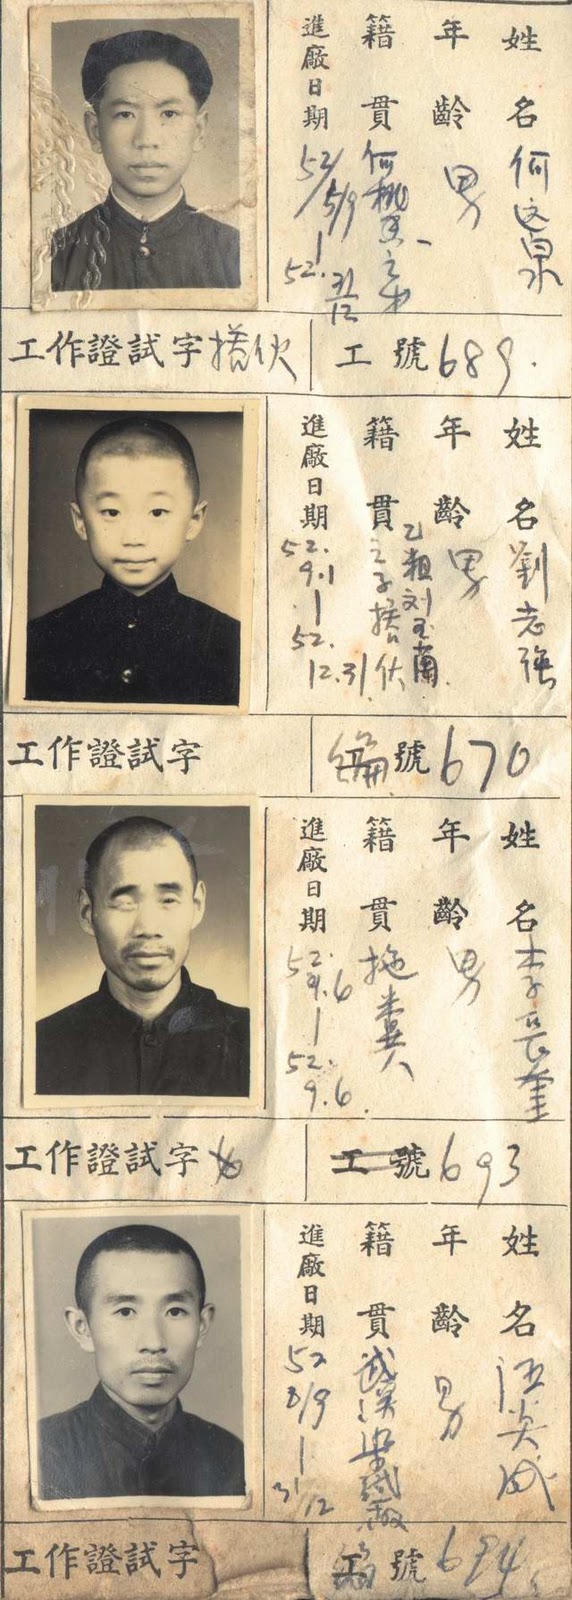 姓名何這泉
年齡男
籍貫何桃
進廠日期52/5/9
52.
31/12
工作證試字搭伙
工號689.
姓名劉志強
年齡男
乙粗刘玉蘭
籍貫之子搭伙
進廠日期52.
9.1
1
52.
12.31
工作證試字
編號670
姓名李長奎
年齡男
籍貫拖糞人
進廠日期52.
9.6
1
52.
9.6.
工作證試字
工號693
姓名汪炎成
年齡男
籍貫武漢
進廠日期52
8/9
1
31/12
工作證試字
編號694